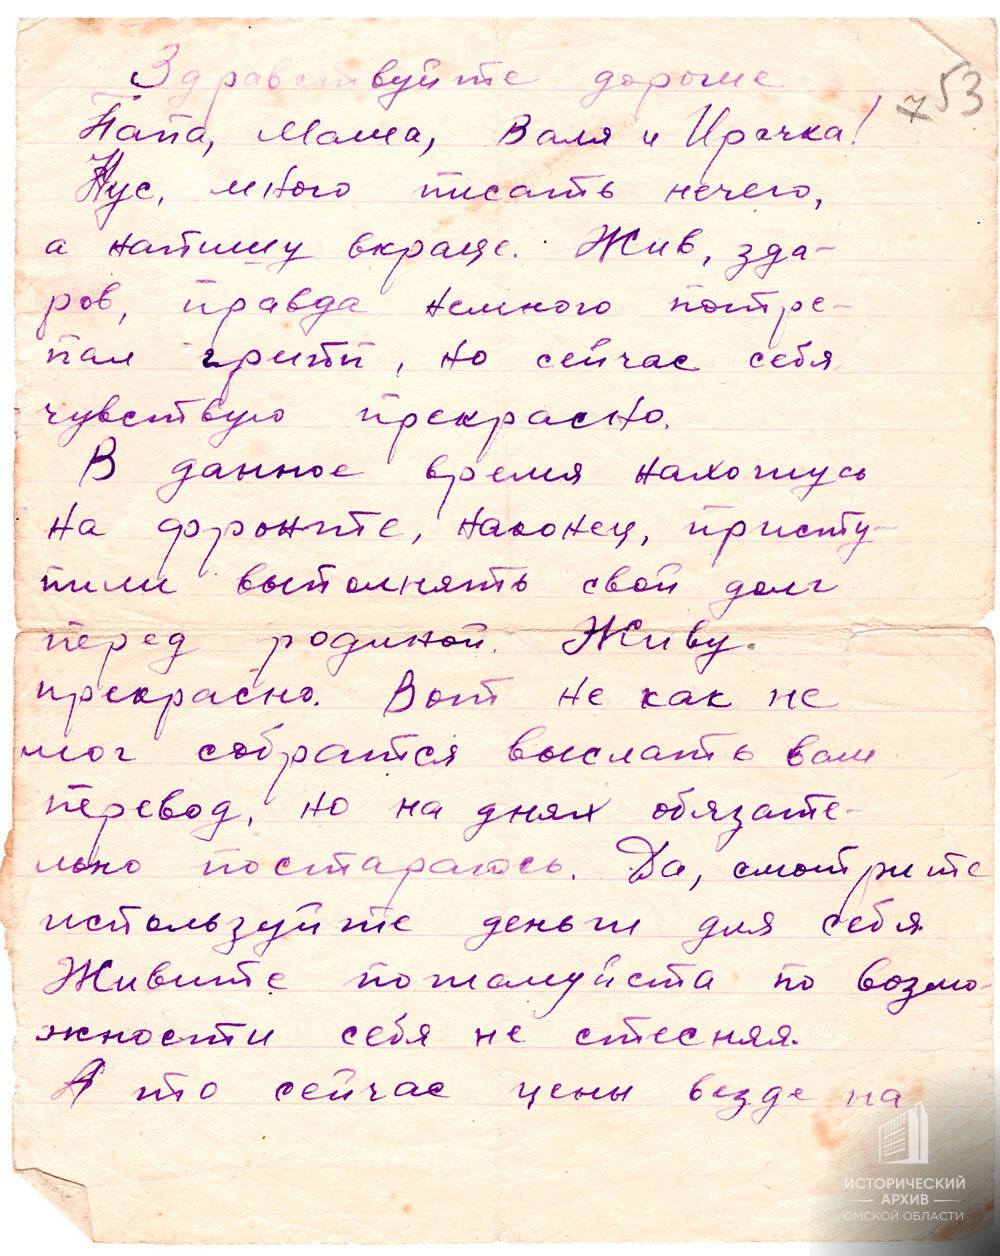 Здравствуйте дорогие
7 53
Папа, Мама, Валя и Ирочка!
Нус, много писать нечего,
а напишу вкраце. Жив, зда-
ров, правда немного потре-
пал грипп, но сейчас себя
чувствую прекрасно.
В данное время нахожусь
на фронте, наконец, присту-
пили выполнять свой долг
перед родиной. Живу
прекрасно. Вот не как не
мог собратся выслать вам
перевод, но на днях обязате-
льно постараюсь. Да, смотрите
используйте деньги для себя.
Живите пожалуйста по возмо-
жности себя не стесняя.
А то сейчас цены везде на
ИСТОРИЧЕСКИЙ
АРХИВ
ОМСКОЙ ОБЛАСТИ